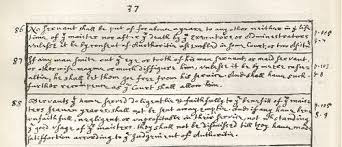 37
86 No servant shall be put of for above a yeare to any other neither in yͤ life
time of yͬ maister nor after yͬ death by yͬ Executors or Administrators
unlesse it be by consent of Authoritie assembled in some Court, or two Assista:
87 If any man smite out yͤ eye or tooth of his man servant, or maid servant
or otherwise mayme or much disfigure him, unlesse it be by meere casu
altie, he shall let them goe free from his service. And shall have such
further recompence as yͤ Court shall allow him.
88 Servants yͭ have served deligentlie & faithfully to yͤ benefitt of yͬ mai
sters seaven yeares, shall not be sent away emptie. and if any have bene
unfaithfull, negligent or unprofitable in their service, not withstanding
yͤ good usage of yͬ maisters, they shall not be dismissed till they have made
satisfaction according to yͤ Judgement of Authoritie.